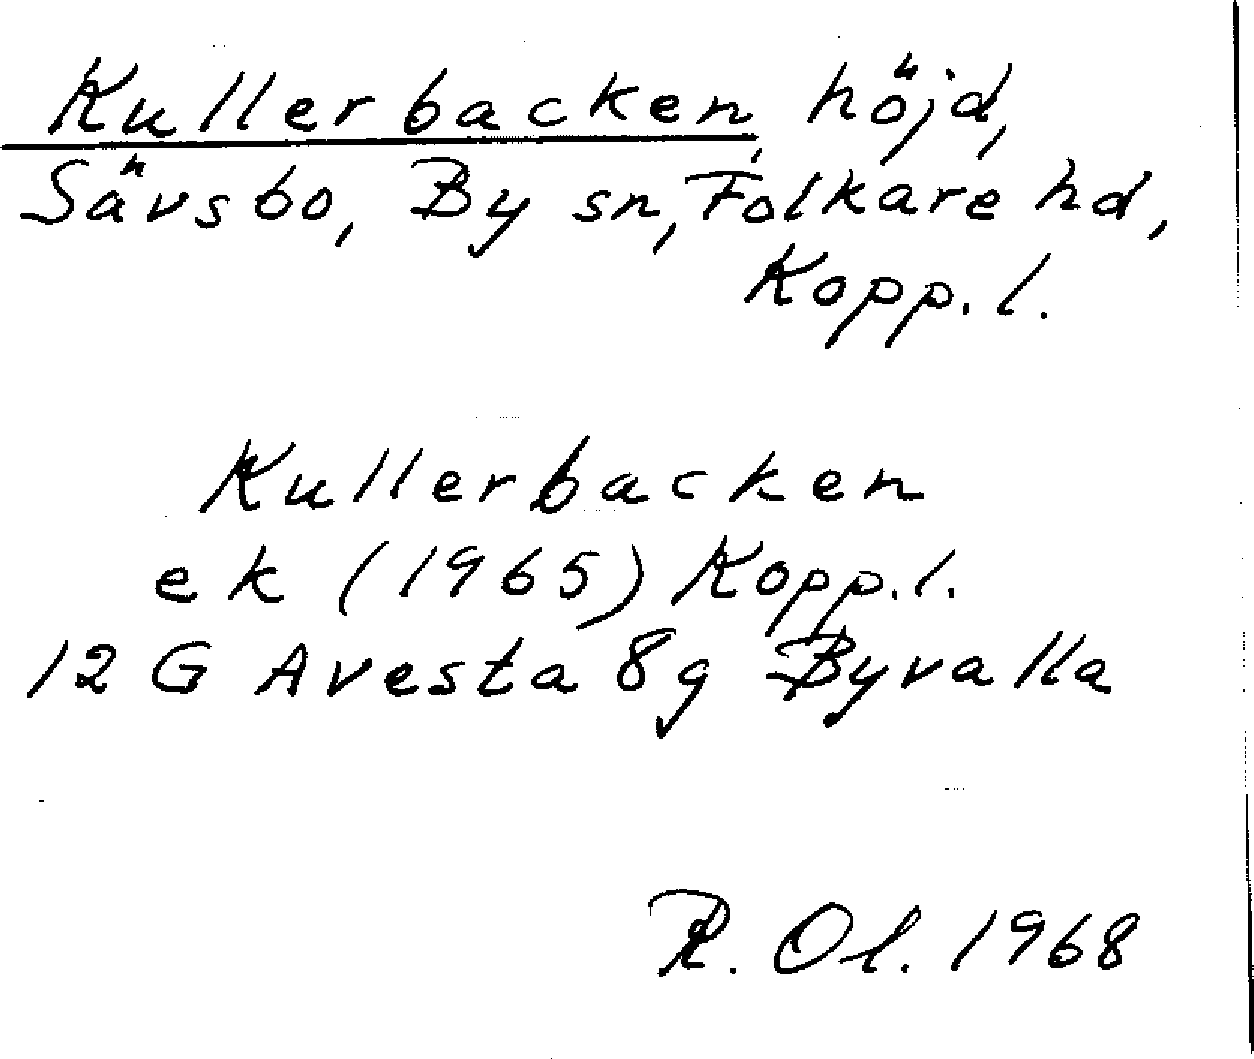 Kullerbacken, höjd,
Sävsbo, By sn, Folkare hd,
Kopp. l.
Kullerbacken
ek (1965) Kopp. l.
12 G Avesta 8g Byvalla
R. Ol. 1968